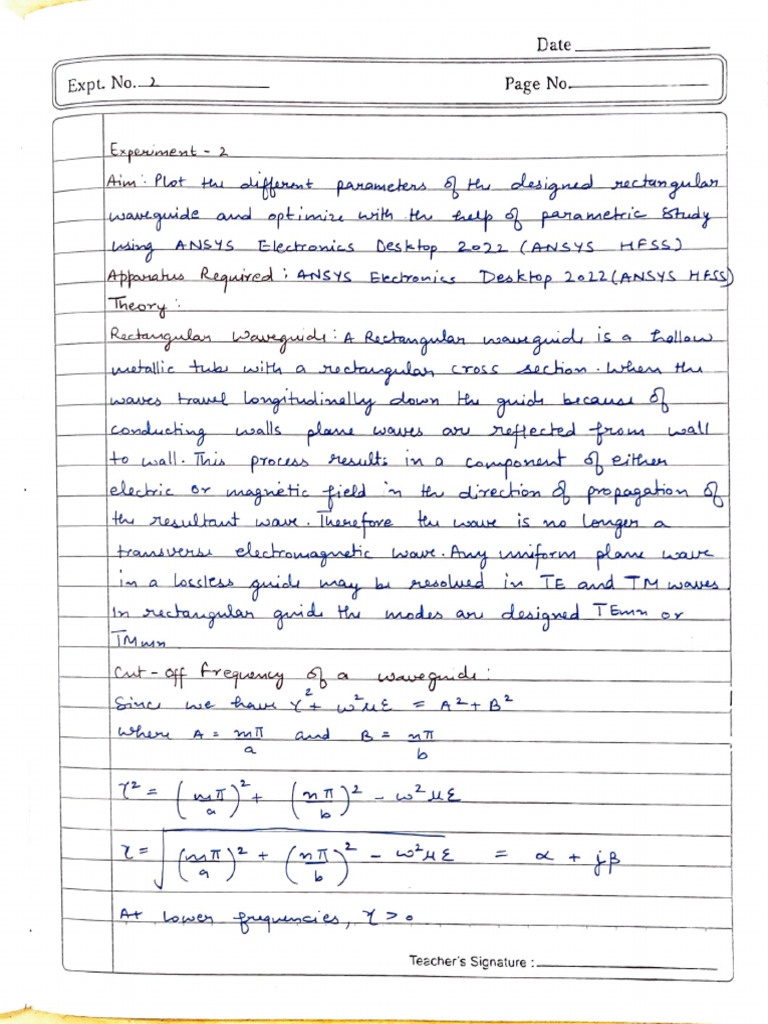 Date
Expt. No. 2 Page No.
Experiment - 2
Aim : Plot the different parameters of the designed rectangular
waveguide and optimize with the help of parametric study
using ANSYS Electronics Desktop 2022 (ANSYS HFSS)
Apparatus Required : ANSYS Electronics Desktop 2022 (ANSYS HFSS)
Theory :
Rectangular Waveguide : A Rectangular waveguide is a hollow
metallic tube with a rectangular cross section. When the
waves travel longitudinally down the guide because of
conducting walls plane waves are reflected from wall
to wall. This process results in a component of either
electric or magnetic field in the direction of propagation of
the resultant wave. Therefore the wave is no longer a
transverse electromagnetic wave. Any uniform plane wave
in a lossless guide may be resolved in TE and TM waves
In rectangular guide the modes are designed TEmn or
TMmn
Cut-off frequency of a waveguide :
Since we have γ² + ω²με = A² + B²
where A = mπ/a and B = nπ/b
γ² = (mπ/a)² + (nπ/b)² - ω²με
γ = √((mπ/a)² + (nπ/b)² - ω²με) = α + jβ
At lower frequencies, γ > 0
Teacher's Signature :